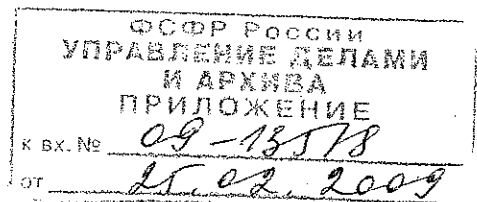 ФСФР России
УПРАВЛЕНИЕ ДЕЛАМИ
И АРХИВА
ПРИЛОЖЕНИЕ
к вх. № 09-13578
от 25.02.2009